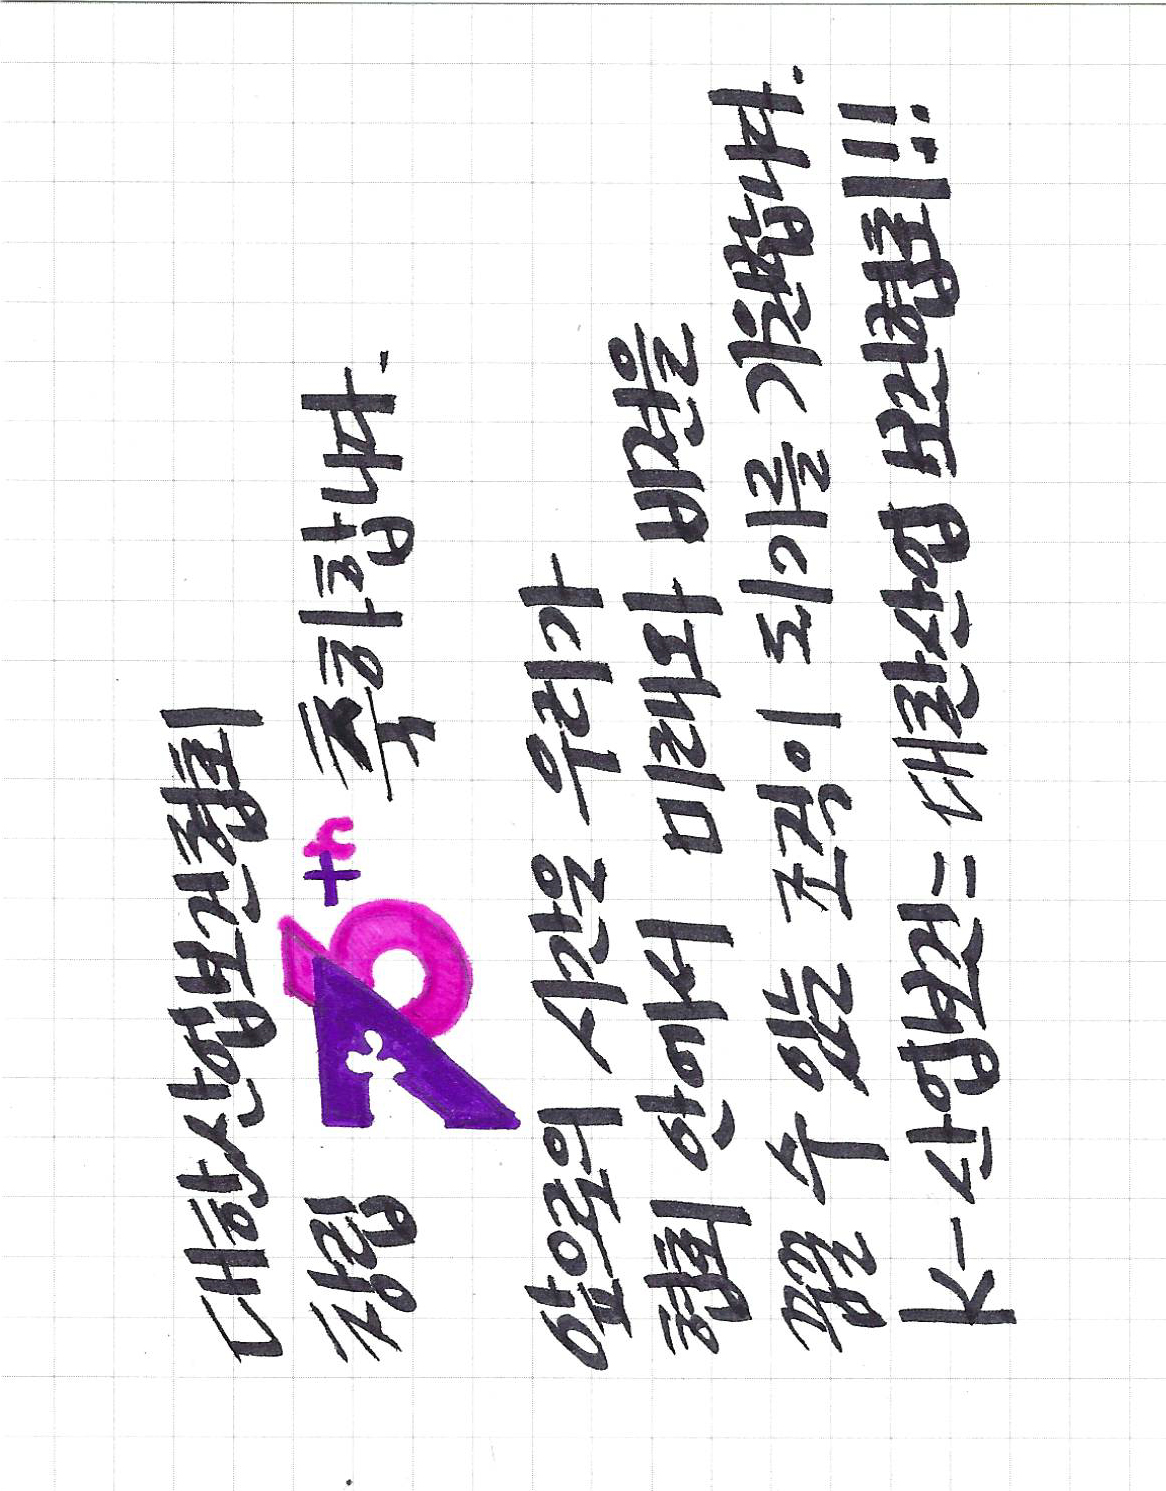 대한산업보건협회
창립 76th 축하합니다.
앞으로의 시간은 우리가
협회 안에서 미래와 비전을
꿈꿀 수 있는 조직이 되기를 기원합니다.
K-산업보건= 대한산업보건협회!!